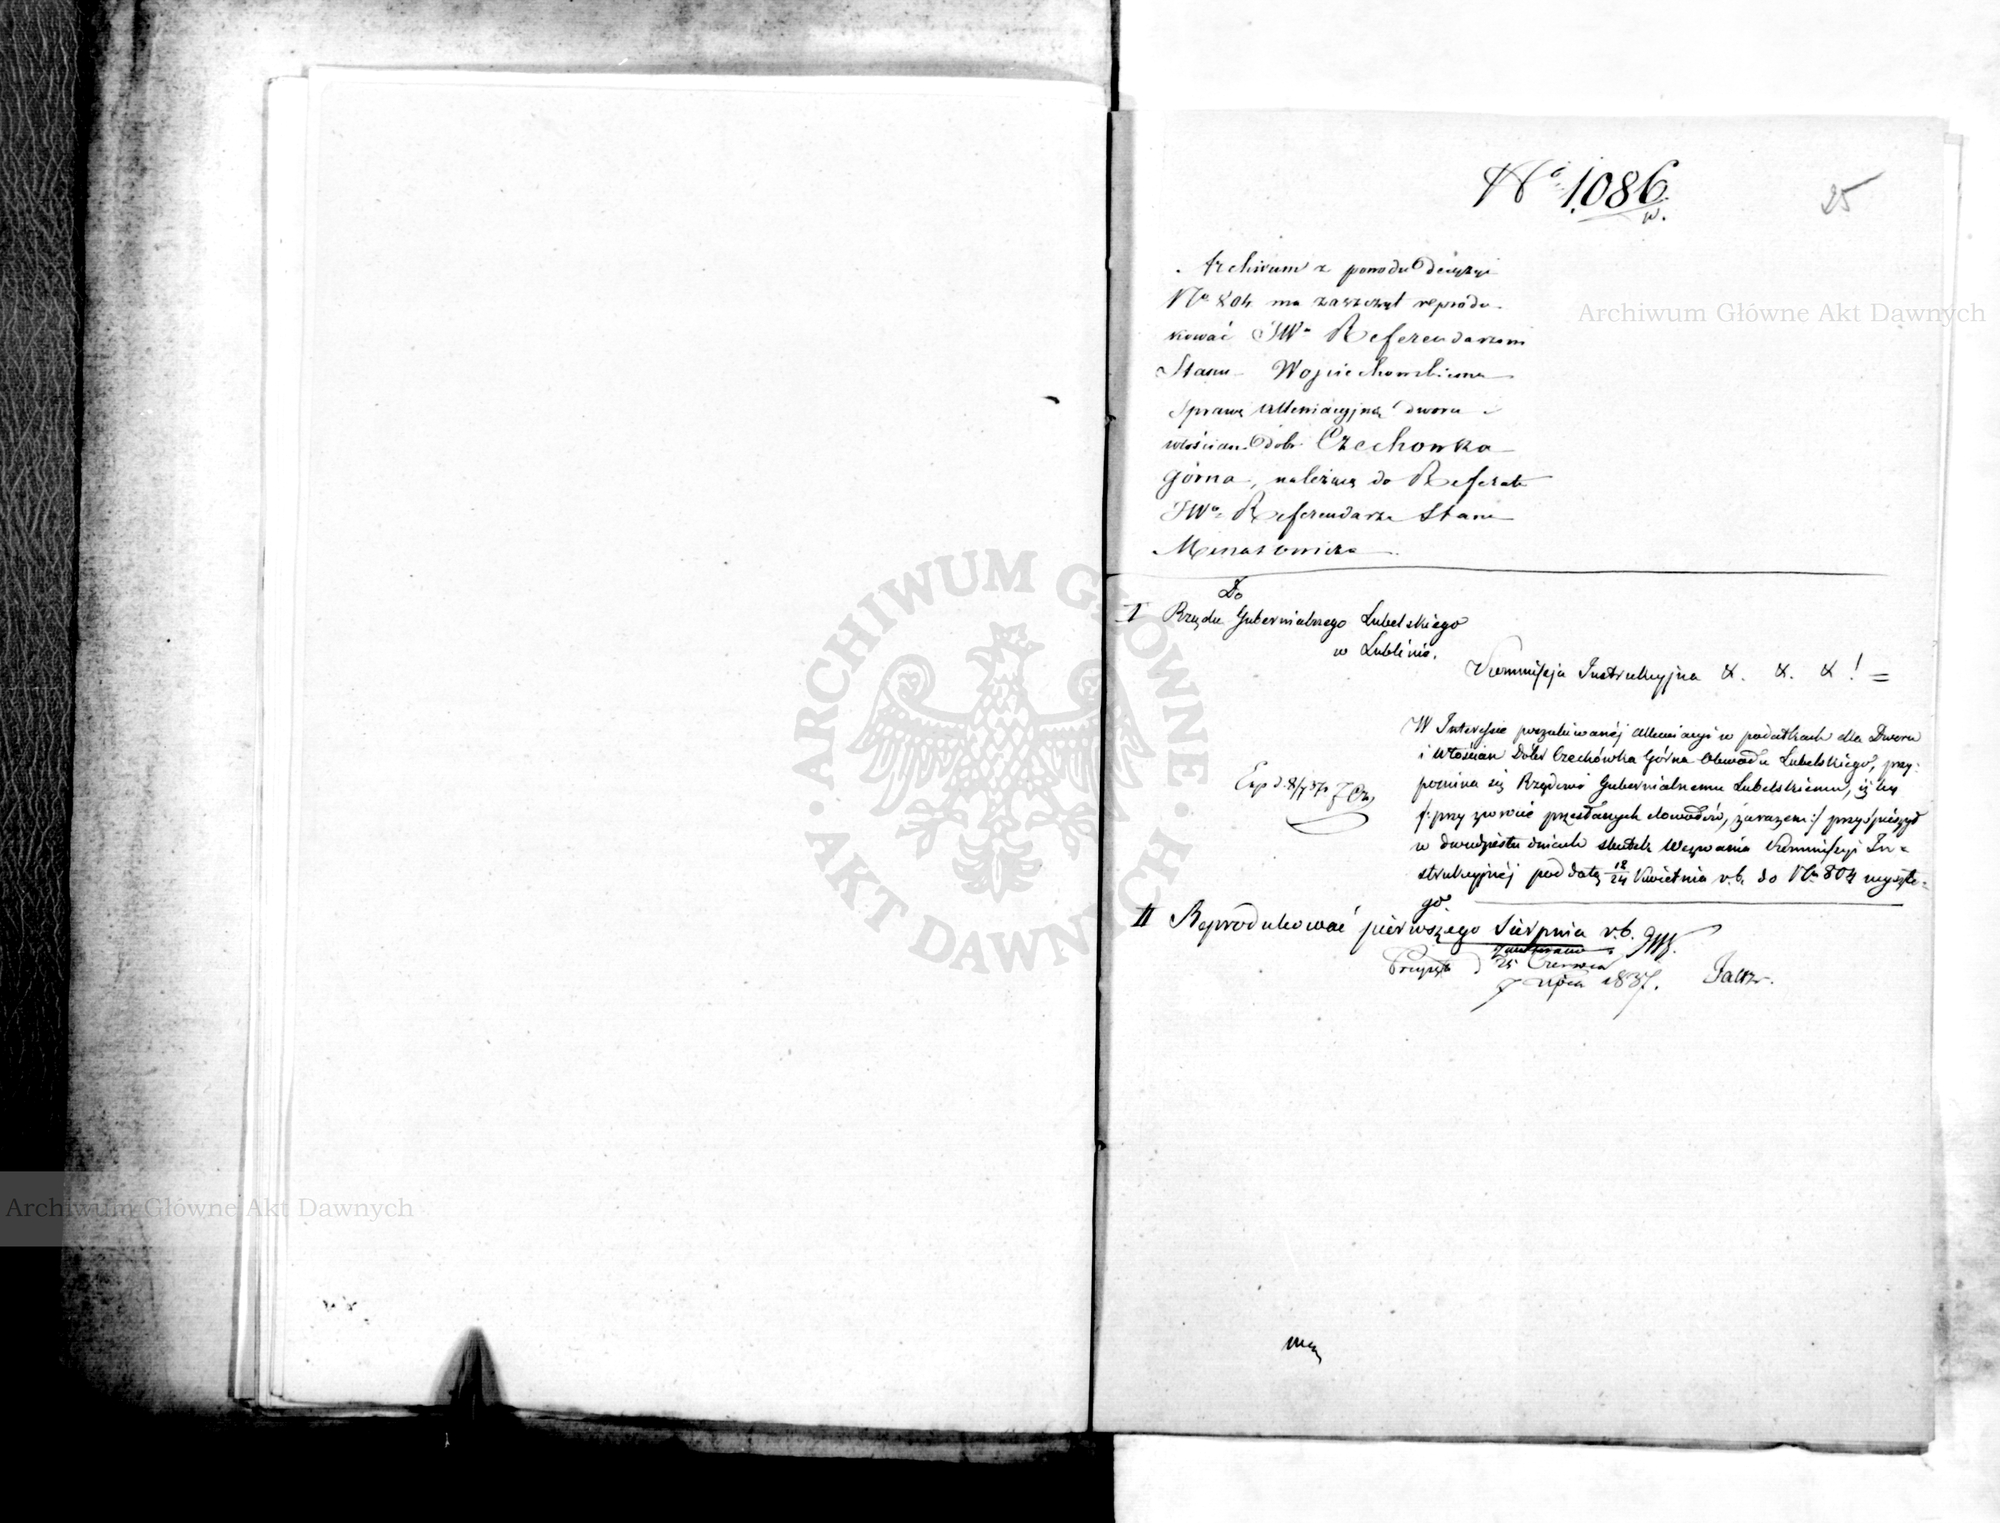 No 1,086.
w.
25
Archivum z powodu decyzyi
No 804 ma zaszczyt reprodu-
kować JWo Referendarzowi
Stanu Wojciechowskiemu
Sprawę allewiacyjną dworu i
włościan dóbr Czechowka
górna, należącą do Referatu
JWo Referendarza Stanu
Minasowicza
Do
I Rządu Gubernialnego Lubelskiego
w Lublinie.
Kommissja Instrukcyjna &. &. & ! =
W Interesie poszukiwanéj allewiacyi w podatkach dla Dworu
i Włościan Dóbr Czechówka Górna Obwodu Lubelskiego, przy-
pomina się Rządowi Gubernialnemu Lubelskiemu, iżby
/:przy zwrocie przesłanych dowodów, zarazem:/ przyśpieszył
w dwudziestu dniach skutek wezwania Kommissyi In-
strukcyjnéj pod datą 12/24 Kwietnia r.b. do No 804 wyszłe-
go.
Exp d. 8/7 37
II Reprodukować pierwszego Sierpnia r.b.
25 Czerwca
7 Lipca 1837.
Archiwum Główne Akt Dawnych
Archiwum Główne Akt Dawnych
ARCHIWUM GŁÓWNE · AKT DAWNYCH ·